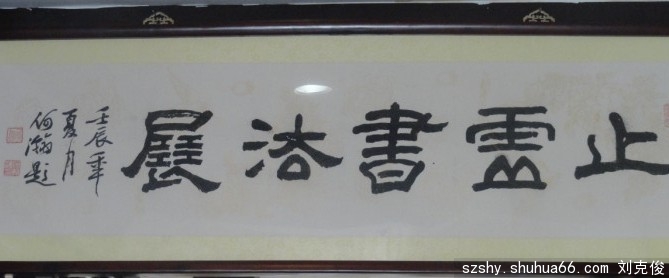 止霊書法展
壬辰年
夏月
何瀚题
szshy.shuhua66.com 刘克俊